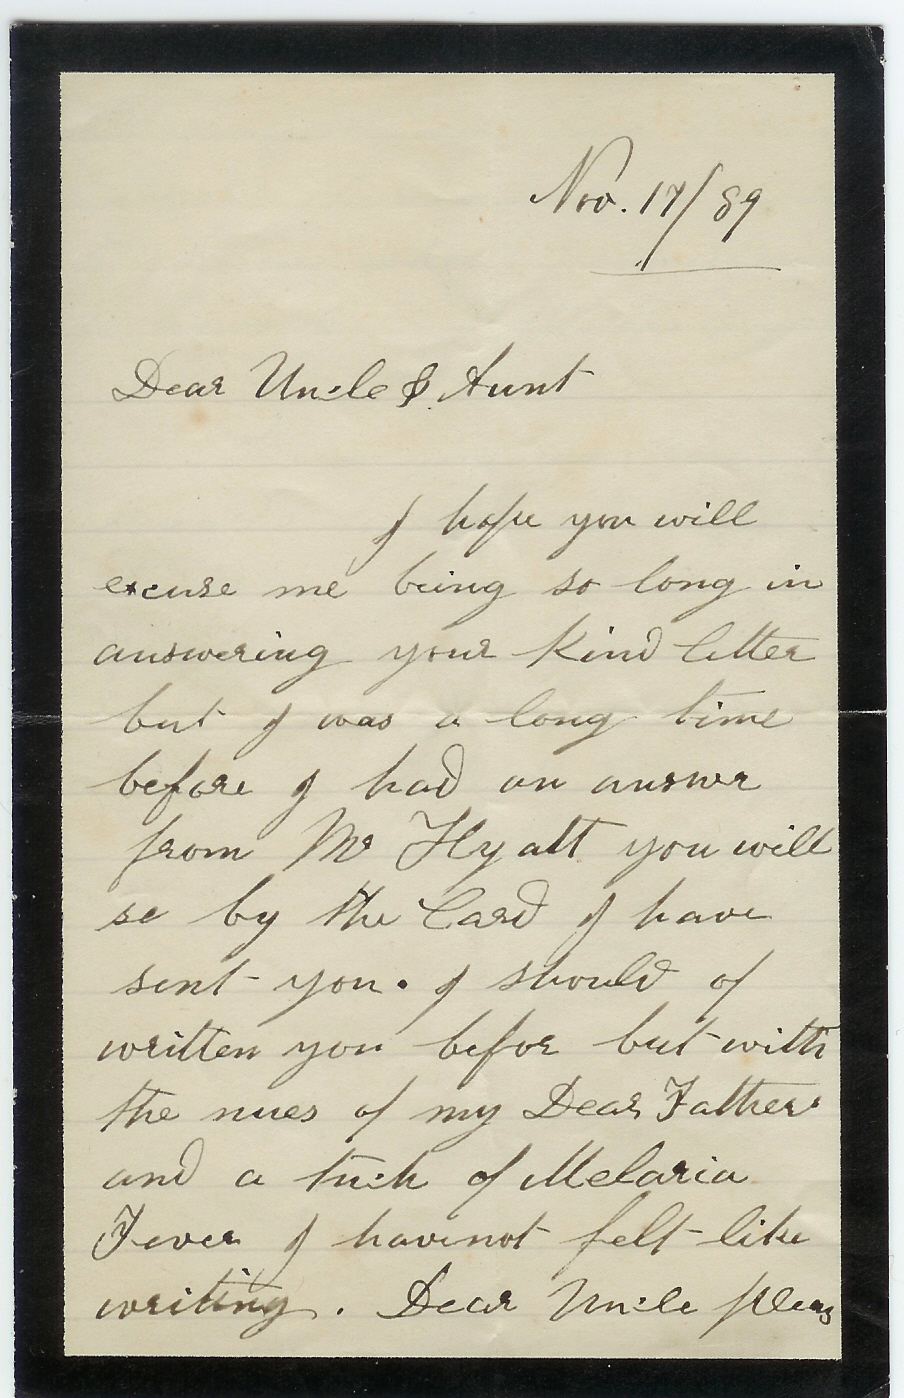 Nov. 17/89
Dear Uncle & Aunt
I hope you will
excuse me being so long in
answering your Kind letter
but I was a long time
before I had an answr
from Mr Hyatt you will
se by the Card I have
sent you. I should of
written you befor but with
the nues of my Dear Father
and a tuch of Melaria
Fever I havenot felt like
writing. Dear Uncle pleas